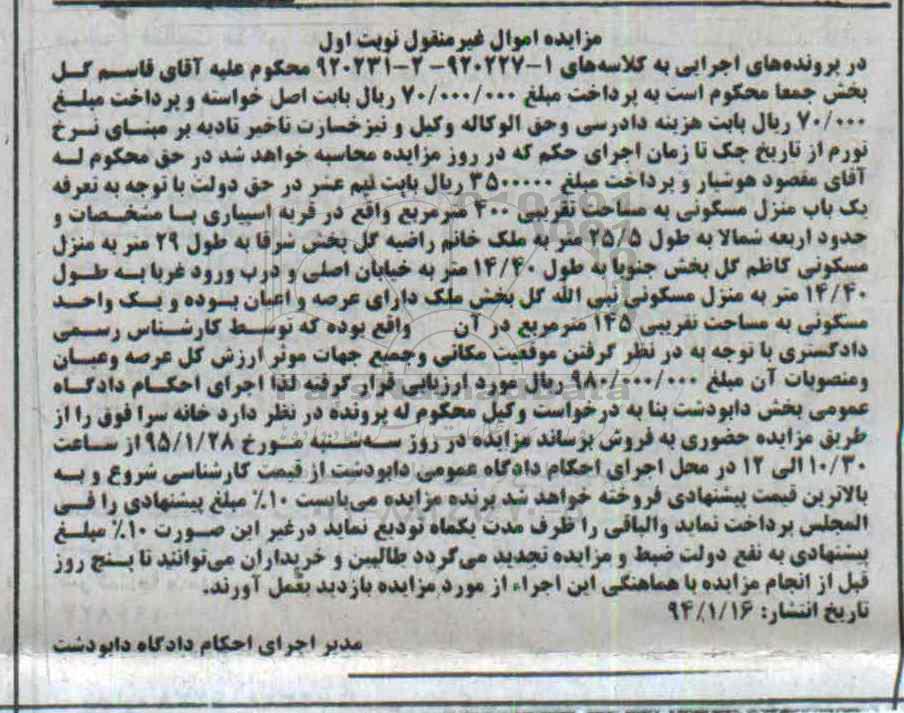 مزایده اموال غیرمنقول نوبت اول
در پرونده‌های اجرایی به کلاسه‌های ۱-۹۲۰۲۲۷- ۲-۹۲۰۲۳۱ محکوم علیه آقای قاسم گل
بخش جمعا محکوم است به پرداخت مبلغ ۷۰/۰۰۰/۰۰۰ ریال بابت اصل خواسته و پرداخت مبلغ
۷۰/۰۰۰ ریال بابت هزینه دادرسی وحق الوکاله وکیل و نیزخسارت تاخیر تادیه بر مبنای نرخ
تورم از تاریخ چک تا زمان اجرای حکم که در روز مزایده محاسبه خواهد شد در حق محکوم له
آقای مقصود هوشیار و پرداخت مبلغ ۳۵۰۰۰۰۰ ریال بابت نیم عشر در حق دولت با توجه به تعرفه
یک باب منزل مسکونی به مساحت تقریبی ۴۰۰ مترمربع واقع در قریه اسپیاری با مشخصات و
حدود اربعه شمالا به طول ۲۵/۵ متر به ملک خانم راضیه گل بخش شرقا به طول ۲۹ متر به منزل
مسکونی کاظم گل بخش جنوبا به طول ۱۴/۴۰ متر به خیابان اصلی و درب ورود غربا به طول
۱۴/۴۰ متر به منزل مسکونی نبی الله گل بخش ملک دارای عرصه و اعیان بوده و یک واحد
مسکونی به مساحت تقریبی ۱۴۵ مترمربع در آن واقع بوده که توسط کارشناس رسمی
دادگستری با توجه به در نظر گرفتن موقعیت مکانی وجمیع جهات موثر ارزش کل عرصه وعیان
ومنصوبات آن مبلغ ۹۸۰/۰۰۰/۰۰۰ ریال مورد ارزیابی قرار گرفته لذا اجرای احکام دادگاه
عمومی بخش دابودشت بنا به درخواست وکیل محکوم له پرونده در نظر دارد خانه سرا فوق را از
طریق مزایده حضوری به فروش برساند مزایده در روز سه‌شنبه مورخ ۹۵/۱/۲۸ از ساعت
۱۰/۳۰ الی ۱۲ در محل اجرای احکام دادگاه عمومی دابودشت از قیمت کارشناسی شروع و به
بالاترین قیمت پیشنهادی فروخته خواهد شد برنده مزایده می‌بایست ۱۰٪ مبلغ پیشنهادی را فی
المجلس پرداخت نماید والباقی را ظرف مدت یکماه تودیع نماید درغیر این صورت ۱۰٪ مبلغ
پیشنهادی به نفع دولت ضبط و مزایده تجدید می‌گردد طالبین و خریداران می‌توانند تا پنج روز
قبل از انجام مزایده با هماهنگی این اجراء از مورد مزایده بازدید بعمل آورند.
تاریخ انتشار: ۹۴/۱/۱۶
مدیر اجرای احکام دادگاه دابودشت